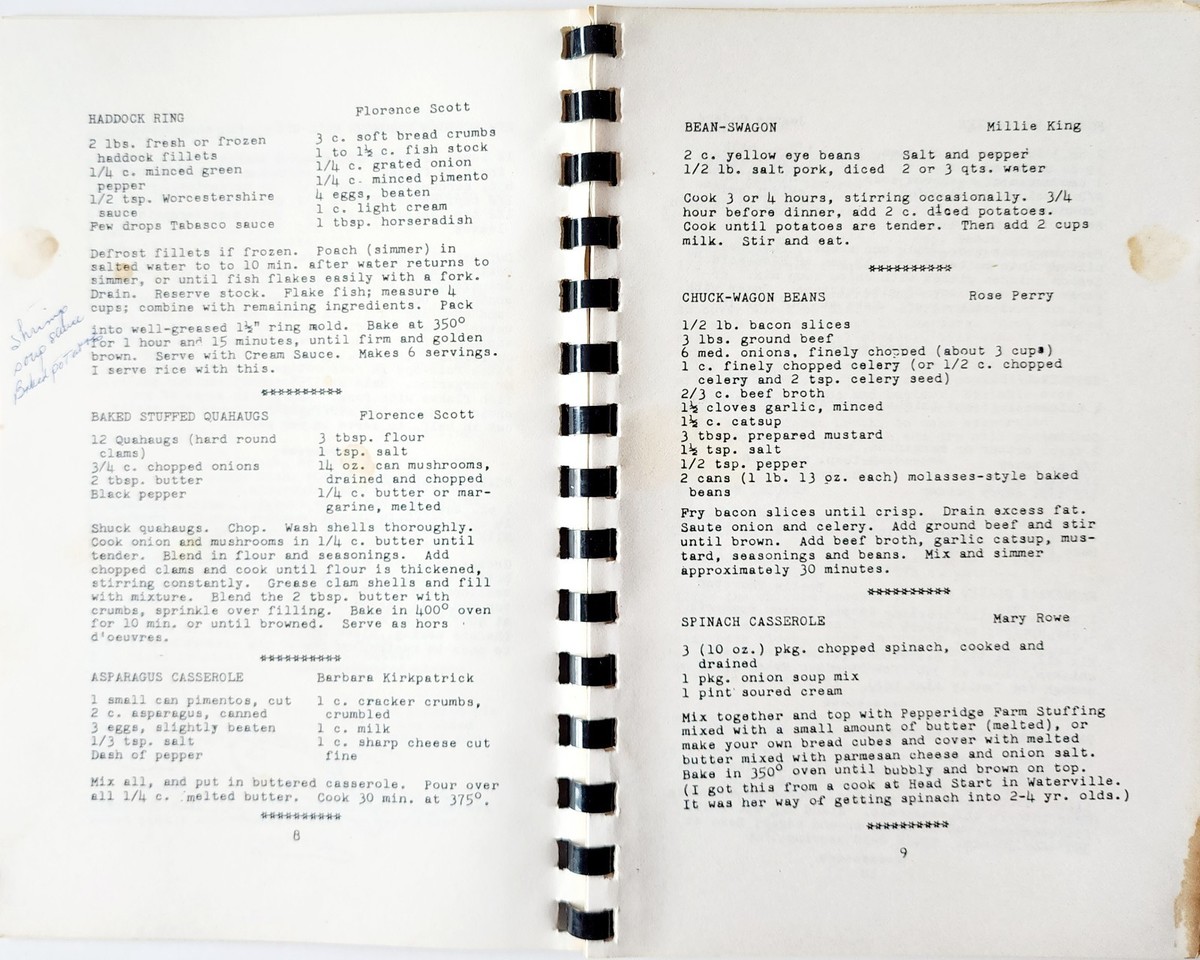 HADDOCK RING Florence Scott
2 lbs. fresh or frozen
haddock fillets
1/4 c. minced green
pepper
1/2 tsp. Worcestershire
sauce
Few drops Tabasco sauce
3 c. soft bread crumbs
1 to 1½ c. fish stock
1/4 c. grated onion
1/4 c. minced pimento
4 eggs, beaten
1 c. light cream
1 tbsp. horseradish
Defrost fillets if frozen. Poach (simmer) in
salted water to to 10 min. after water returns to
simmer, or until fish flakes easily with a fork.
Drain. Reserve stock. Flake fish; measure 4
cups; combine with remaining ingredients. Pack
into well-greased 1½" ring mold. Bake at 350°
for 1 hour and 15 minutes, until firm and golden
brown. Serve with Cream Sauce. Makes 6 servings.
I serve rice with this.
Shrimp
soup sauce
Baked potatoes
**********
BAKED STUFFED QUAHAUGS Florence Scott
12 Quahaugs (hard round
clams)
3/4 c. chopped onions
2 tbsp. butter
Black pepper
3 tbsp. flour
1 tsp. salt
14 oz. can mushrooms,
drained and chopped
1/4 c. butter or mar-
garine, melted
Shuck quahaugs. Chop. Wash shells thoroughly.
Cook onion and mushrooms in 1/4 c. butter until
tender. Blend in flour and seasonings. Add
chopped clams and cook until flour is thickened,
stirring constantly. Grease clam shells and fill
with mixture. Blend the 2 tbsp. butter with
crumbs, sprinkle over filling. Bake in 400° oven
for 10 min. or until browned. Serve as hors
d'oeuvres.
**********
ASPARAGUS CASSEROLE Barbara Kirkpatrick
1 small can pimentos, cut
2 c. asparagus, canned
3 eggs, slightly beaten
1/3 tsp. salt
Dash of pepper
1 c. cracker crumbs,
crumbled
1 c. milk
1 c. sharp cheese cut
fine
Mix all, and put in buttered casserole. Pour over
all 1/4 c. melted butter. Cook 30 min. at 375°.
**********
8
BEAN-SWAGON Millie King
2 c. yellow eye beans Salt and pepper
1/2 lb. salt pork, diced 2 or 3 qts. water
Cook 3 or 4 hours, stirring occasionally. 3/4
hour before dinner, add 2 c. diced potatoes.
Cook until potatoes are tender. Then add 2 cups
milk. Stir and eat.
**********
CHUCK-WAGON BEANS Rose Perry
1/2 lb. bacon slices
3 lbs. ground beef
6 med. onions, finely chopped (about 3 cups)
1 c. finely chopped celery (or 1/2 c. chopped
celery and 2 tsp. celery seed)
2/3 c. beef broth
1½ cloves garlic, minced
1½ c. catsup
3 tbsp. prepared mustard
1½ tsp. salt
1/2 tsp. pepper
2 cans (1 lb. 13 oz. each) molasses-style baked
beans
Fry bacon slices until crisp. Drain excess fat.
Saute onion and celery. Add ground beef and stir
until brown. Add beef broth, garlic catsup, mus-
tard, seasonings and beans. Mix and simmer
approximately 30 minutes.
**********
SPINACH CASSEROLE Mary Rowe
3 (10 oz.) pkg. chopped spinach, cooked and
drained
1 pkg. onion soup mix
1 pint soured cream
Mix together and top with Pepperidge Farm Stuffing
mixed with a small amount of butter (melted), or
make your own bread cubes and cover with melted
butter mixed with parmesan cheese and onion salt.
Bake in 350° oven until bubbly and brown on top.
(I got this from a cook at Head Start in Waterville.
It was her way of getting spinach into 2-4 yr. olds.)
**********
9